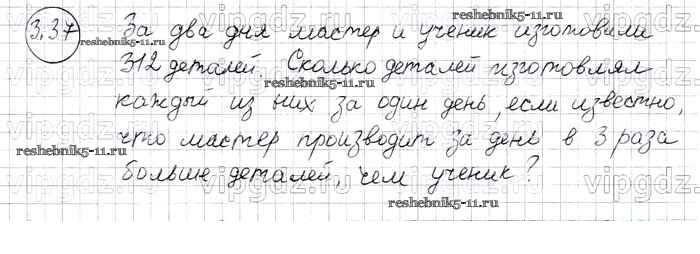 3.37 За два дня мастер и ученик изготовили
312 деталей. Сколько деталей изготовлял
каждый из них за один день, если известно,
что мастер производит за день в 3 раза
больше деталей, чем ученик?
reshebnik5-11.ru
reshebnik5-11.ru
reshebnik5-11.ru
reshebnik5-11.ru
reshebnik5-11.ru
vipgdz.ru
vipgdz.ru
vipgdz.ru